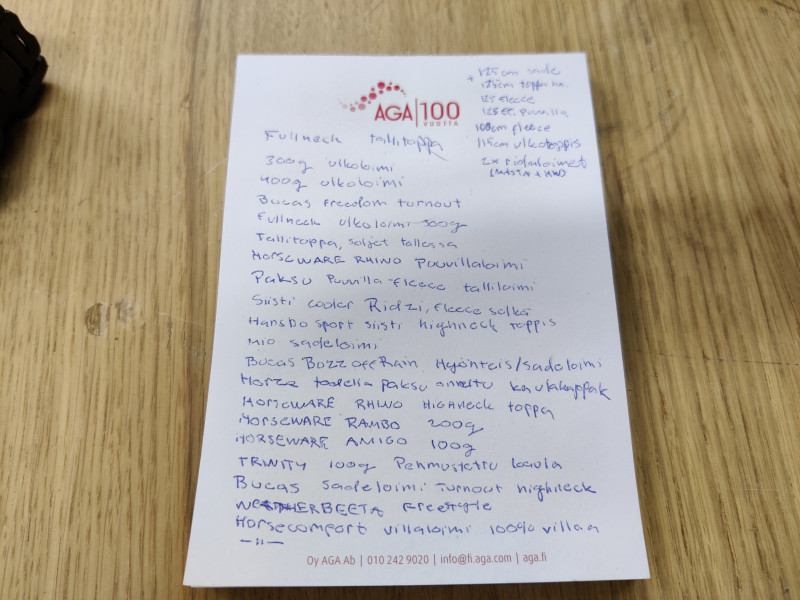 AGA 100
VUOTTA
+ 125cm sade
125cm toppa
125 fleece
125 puuvilla
100cm fleece
115cm ulkotoppis
2x riduloimet
Fullneck tallitoppa
300g ulkoloimi
400g ulkoloimi
Bucas Freedom turnout
Fullneck ulkoloimi 300g
Tallitoppa, soljet tallessa
HORSEWARE RHINO Puuvillaloimi
Paksu Puuvilla-fleece talliloimi
Siisti cooler Ridzi, fleece selkä
Hansbo sport siisti highneck toppis
Mio sadeloimi
Bucas Buzz off Rain Hyönteis/sadeloimi
Horze todella paksu ommeltu kaulakappale
HORSEWARE RHINO HIGHNECK toppa
HORSEWARE RAMBO 200g
HORSEWARE AMIGO 100g
TRINITY 100g Pehmustettu kaula
Bucas sadeloimi Turnout highneck
WEATHERBEETA Freestyle
Horsecomfort villaloimi 100% villaa
–"–
Oy AGA Ab | 010 242 9020 | info@fi.aga.com | aga.fi